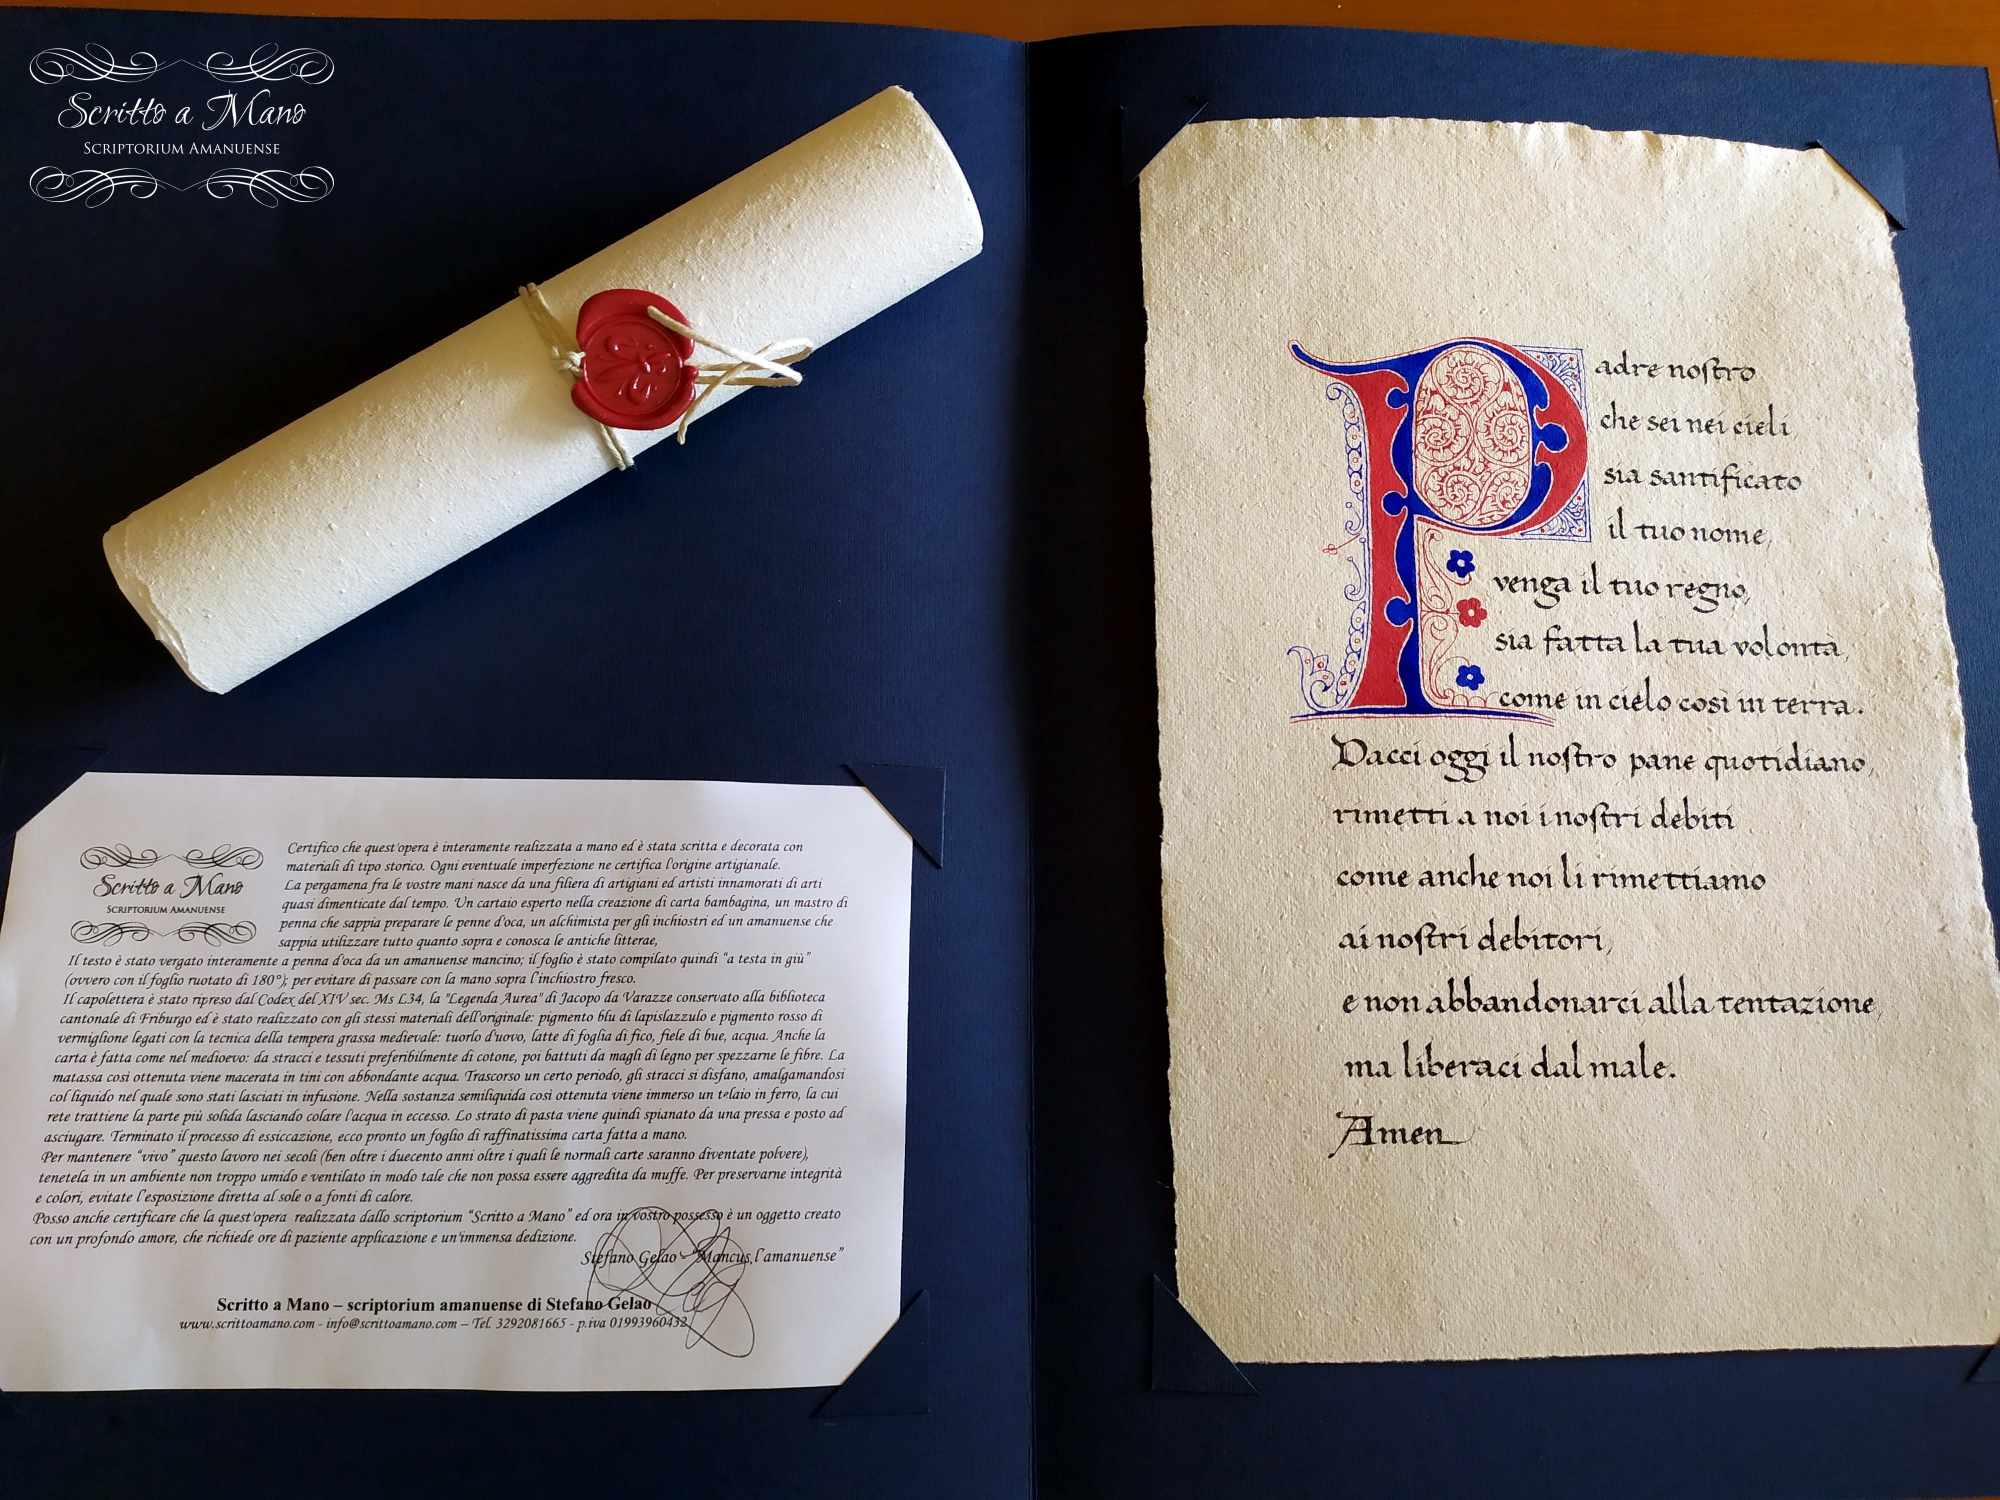 Scritto a Mano
SCRIPTORIUM AMANUENSE
Scritto a Mano
SCRIPTORIUM AMANUENSE
Certifico che quest'opera è interamente realizzata a mano ed è stata scritta e decorata con
materiali di tipo storico. Ogni eventuale imperfezione ne certifica l'origine artigianale.
La pergamena fra le vostre mani nasce da una filiera di artigiani ed artisti innamorati di arti
quasi dimenticate dal tempo. Un cartaio esperto nella creazione di carta bambagina, un mastro di
penna che sappia preparare le penne d'oca, un alchimista per gli inchiostri ed un amanuense che
sappia utilizzare tutto quanto sopra e conosca le antiche litterae,
Il testo è stato vergato interamente a penna d'oca da un amanuense mancino; il foglio è stato compilato quindi "a testa in giù"
(ovvero con il foglio ruotato di 180°); per evitare di passare con la mano sopra l'inchiostro fresco.
Il capolettera è stato ripreso dal Codex del XIV sec. Ms L34, la "Legenda Aurea" di Jacopo da Varazze conservato alla biblioteca
cantonale di Friburgo ed è stato realizzato con gli stessi materiali dell'originale: pigmento blu di lapislazzulo e pigmento rosso di
vermiglione legati con la tecnica della tempera grassa medievale: tuorlo d'uovo, latte di foglia di fico, fiele di bue, acqua. Anche la
carta è fatta come nel medioevo: da stracci e tessuti preferibilmente di cotone, poi battuti da magli di legno per spezzarne le fibre. La
matassa così ottenuta viene macerata in tini con abbondante acqua. Trascorso un certo periodo, gli stracci si disfano, amalgamandosi
col liquido nel quale sono stati lasciati in infusione. Nella sostanza semiliquida così ottenuta viene immerso un telaio in ferro, la cui
rete trattiene la parte più solida lasciando colare l'acqua in eccesso. Lo strato di pasta viene quindi spianato da una pressa e posto ad
asciugare. Terminato il processo di essiccazione, ecco pronto un foglio di raffinatissima carta fatta a mano.
Per mantenere "vivo" questo lavoro nei secoli (ben oltre i duecento anni oltre i quali le normali carte saranno diventate polvere),
tenetela in un ambiente non troppo umido e ventilato in modo tale che non possa essere aggredita da muffe. Per preservarne integrità
e colori, evitate l'esposizione diretta al sole o a fonti di calore.
Posso anche certificare che la quest'opera realizzata dallo scriptorium "Scritto a Mano" ed ora in vostro possesso è un oggetto creato
con un profondo amore, che richiede ore di paziente applicazione e un'immensa dedizione.
Stefano Gelao - "Mancus l'amanuense"
Scritto a Mano – scriptorium amanuense di Stefano Gelao
www.scrittoamano.com - info@scrittoamano.com – Tel. 3292081665 - p.iva 01993960432
Padre nostro
che sei nei cieli
sia santificato
il tuo nome,
venga il tuo regno,
sia fatta la tua volontà,
come in cielo così in terra.
Dacci oggi il nostro pane quotidiano,
rimetti a noi i nostri debiti
come anche noi li rimettiamo
ai nostri debitori,
e non abbandonarci alla tentazione,
ma liberaci dal male.
Amen